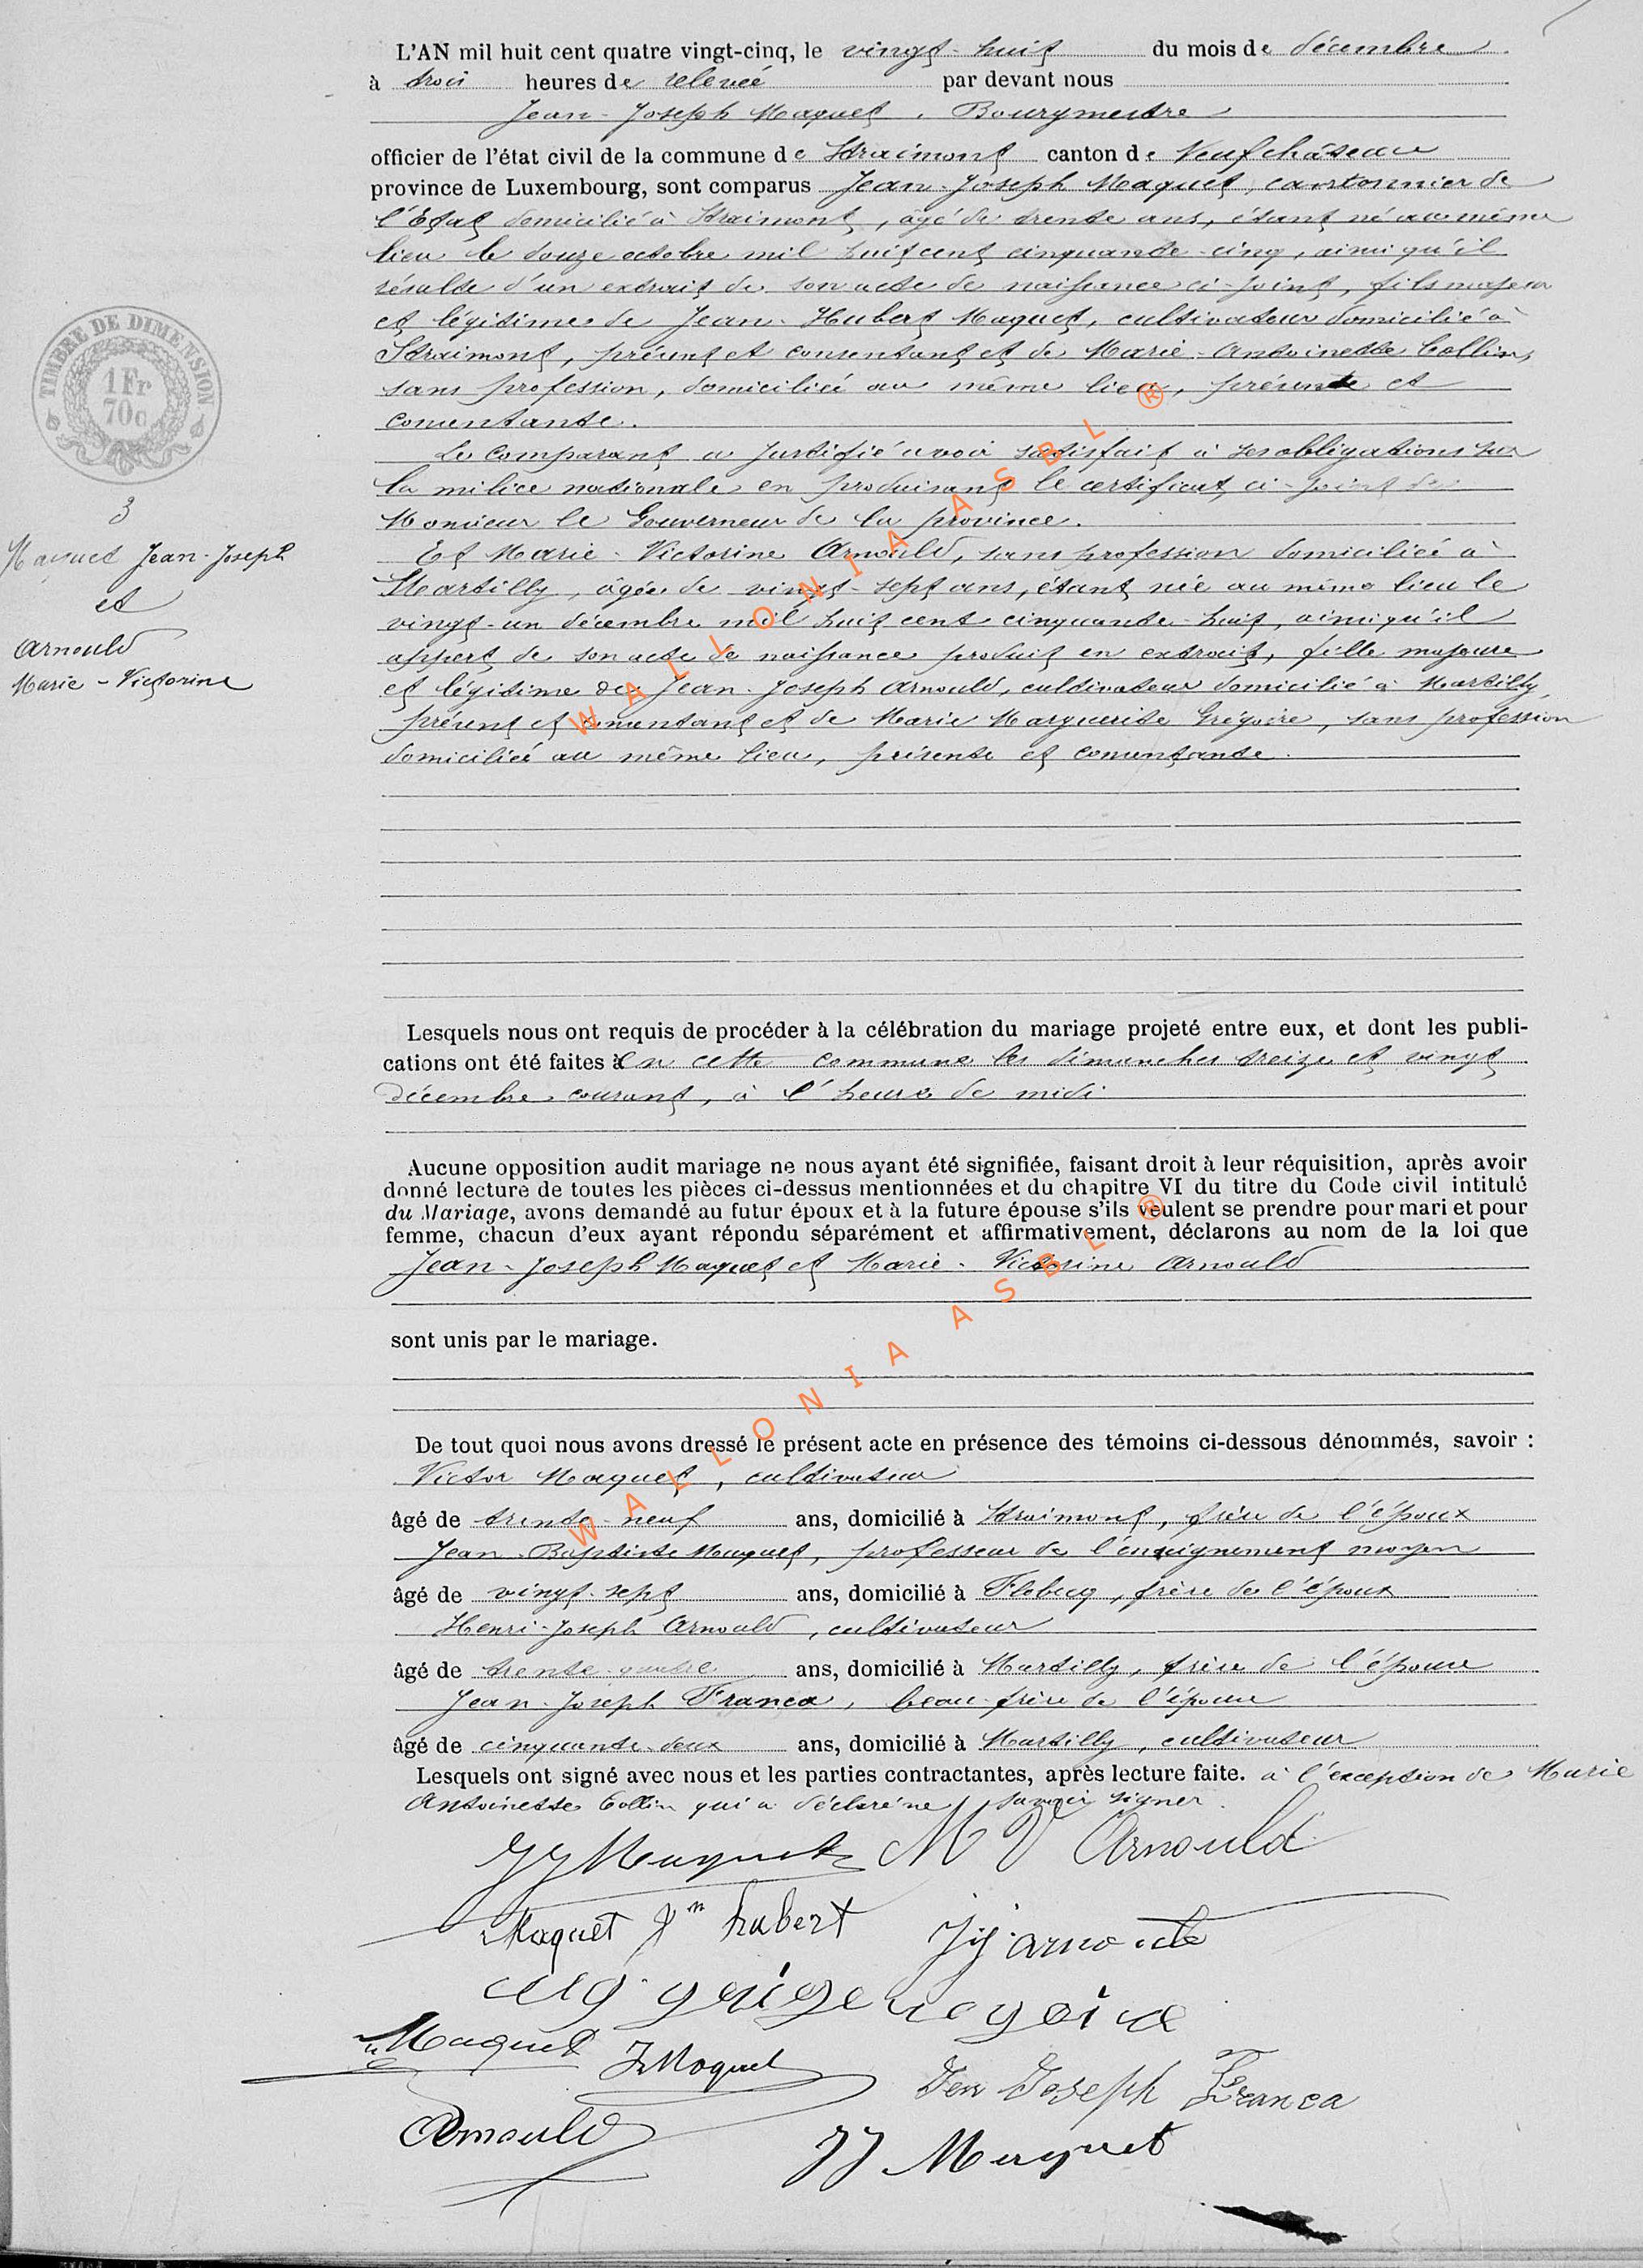 L'AN mil huit cent quatre vingt-cinq, le vingt-huit du mois de décembre
à trois heures de relevée par devant nous
Jean-Joseph Maquet, Bourgmestre
officier de l'état civil de la commune de Straimont canton de Neufchâteau
province de Luxembourg, sont comparus Jean-Joseph Maquet, cantonnier de
l'Etat domicilié à Straimont, âgé de trente ans, étant né au même
lieu le douze octobre mil huit cent cinquante-cinq, ainsi qu'il
résulte d'un extrait de son acte de naissance ci-joint, fils majeur
et légitime de Jean-Hubert Maquet, cultivateur domicilié à
Straimont, présent et consentant et de Marie-Antoinette Collin,
sans profession, domiciliée au même lieu, présente et
consentante.
Le comparant a justifié avoir satisfait à ses obligations sur
la milice nationale en produisant le certificat ci-joint de
Monsieur le Gouverneur de la province.
Et Marie-Victorine Arnould, sans profession domiciliée à
Martilly, âgée de vingt-sept ans, étant née au même lieu le
vingt-un décembre mil huit cent cinquante-huit, ainsi qu'il
appert de son acte de naissance produit en extrait, fille majeure
et légitime de Jean-Joseph Arnould, cultivateur domicilié à Martilly,
présent et consentant et de Marie Marguerite Grégoire, sans profession
domiciliée au même lieu, présente et consentante.
TIMBRE DE DIMENSION
1 Fr
70c
3
Maquet Jean-Joseph
et
Arnould
Marie-Victorine
WALLONIA ASBL ®
Lesquels nous ont requis de procéder à la célébration du mariage projeté entre eux, et dont les publi-
cations ont été faites à en cette commune les dimanches treize et vingt
décembre courant, à l'heure de midi
Aucune opposition audit mariage ne nous ayant été signifiée, faisant droit à leur réquisition, après avoir
donné lecture de toutes les pièces ci-dessus mentionnées et du chapitre VI du titre du Code civil intitulé
du Mariage, avons demandé au futur époux et à la future épouse s'ils veulent se prendre pour mari et pour
femme, chacun d'eux ayant répondu séparément et affirmativement, déclarons au nom de la loi que
Jean-Joseph Maquet et Marie-Victorine Arnould
sont unis par le mariage.
WALLONIA ASBL ®
De tout quoi nous avons dressé le présent acte en présence des témoins ci-dessous dénommés, savoir :
Victor Maquet, cultivateur
âgé de trente-neuf ans, domicilié à Straimont, frère de l'époux
Jean-Baptiste Maquet, professeur de l'enseignement moyen
âgé de vingt-sept ans, domicilié à Flobecq, frère de l'époux
Henri-Joseph Arnould, cultivateur
âgé de trente-quatre ans, domicilié à Martilly, frère de l'épouse
Jean-Joseph Franca, beau-frère de l'épouse
âgé de cinquante-deux ans, domicilié à Martilly, cultivateur
Lesquels ont signé avec nous et les parties contractantes, après lecture faite. à l'exception de Marie
Antoinette Collin qui a déclaré ne savoir signer.
JJ Maquet M V Arnould
Maquet Jn hubert J j arnould
Maquet J Maquet Jean Joseph Franca
Arnould JJ Maquet